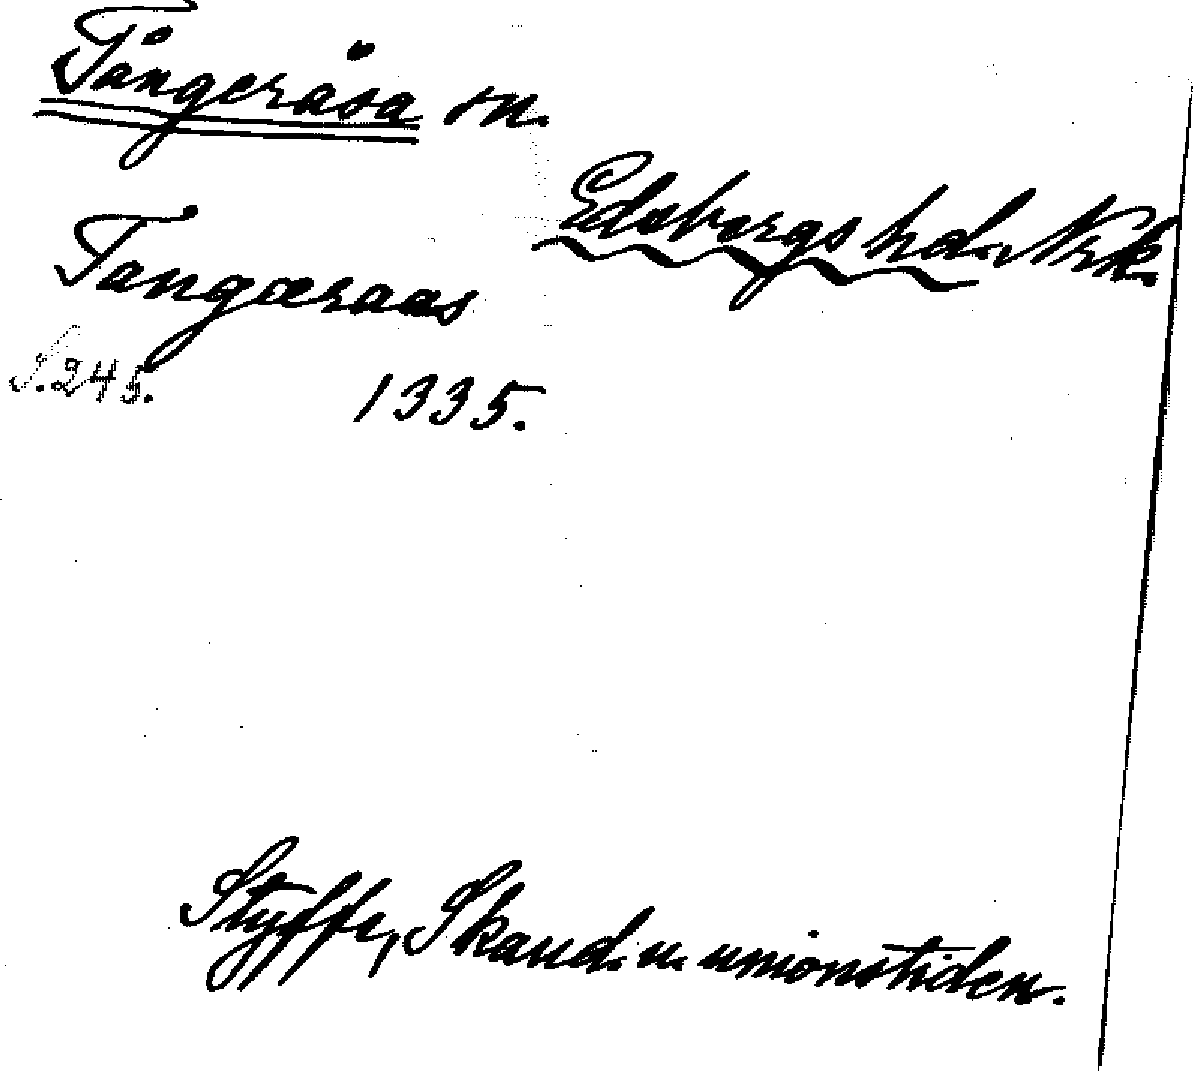 Tångeråsa sn.
Edsbergs hd., Nrk.
Tangæraas
S. 245.
1335.
Styffe, Skand. u. unionstiden.